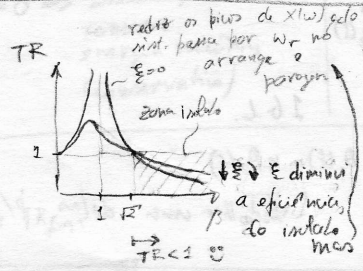 reduz os picos de X(ω) qdo
sist. passa por ωr no
arranque e
TR
ξ=0
zona isolado
1
1 √2 β
TR<1
↓ξ ↓ ξ diminui
a eficiência
do isolado
mas